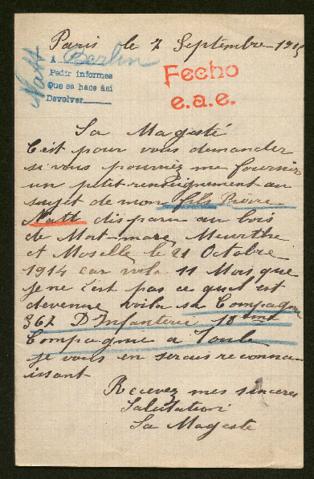 Paris le 7 Septembre 1915
A Berlin
Pedir informes
Que se hace así
Devolver
Natt
Fecho
e.a.e.
Sa Magesté
C'est pour vous demander
si vous pourriez me fournir
un petit renseignement au
sujet de mon fils Pierre
Natt disparu au bois
de Mort-mare Meurthe
et Moselle, le 21 Octobre
1914 car voila 11 Mois que
je ne c'est pas ce quel est
devenue voila sa Compagnie
367 D'Infanterie 18 eme
Compagnie a Toule
je vous en serais reconna
issant
Recevez mes sinceres
Salutation
Sa Magesté